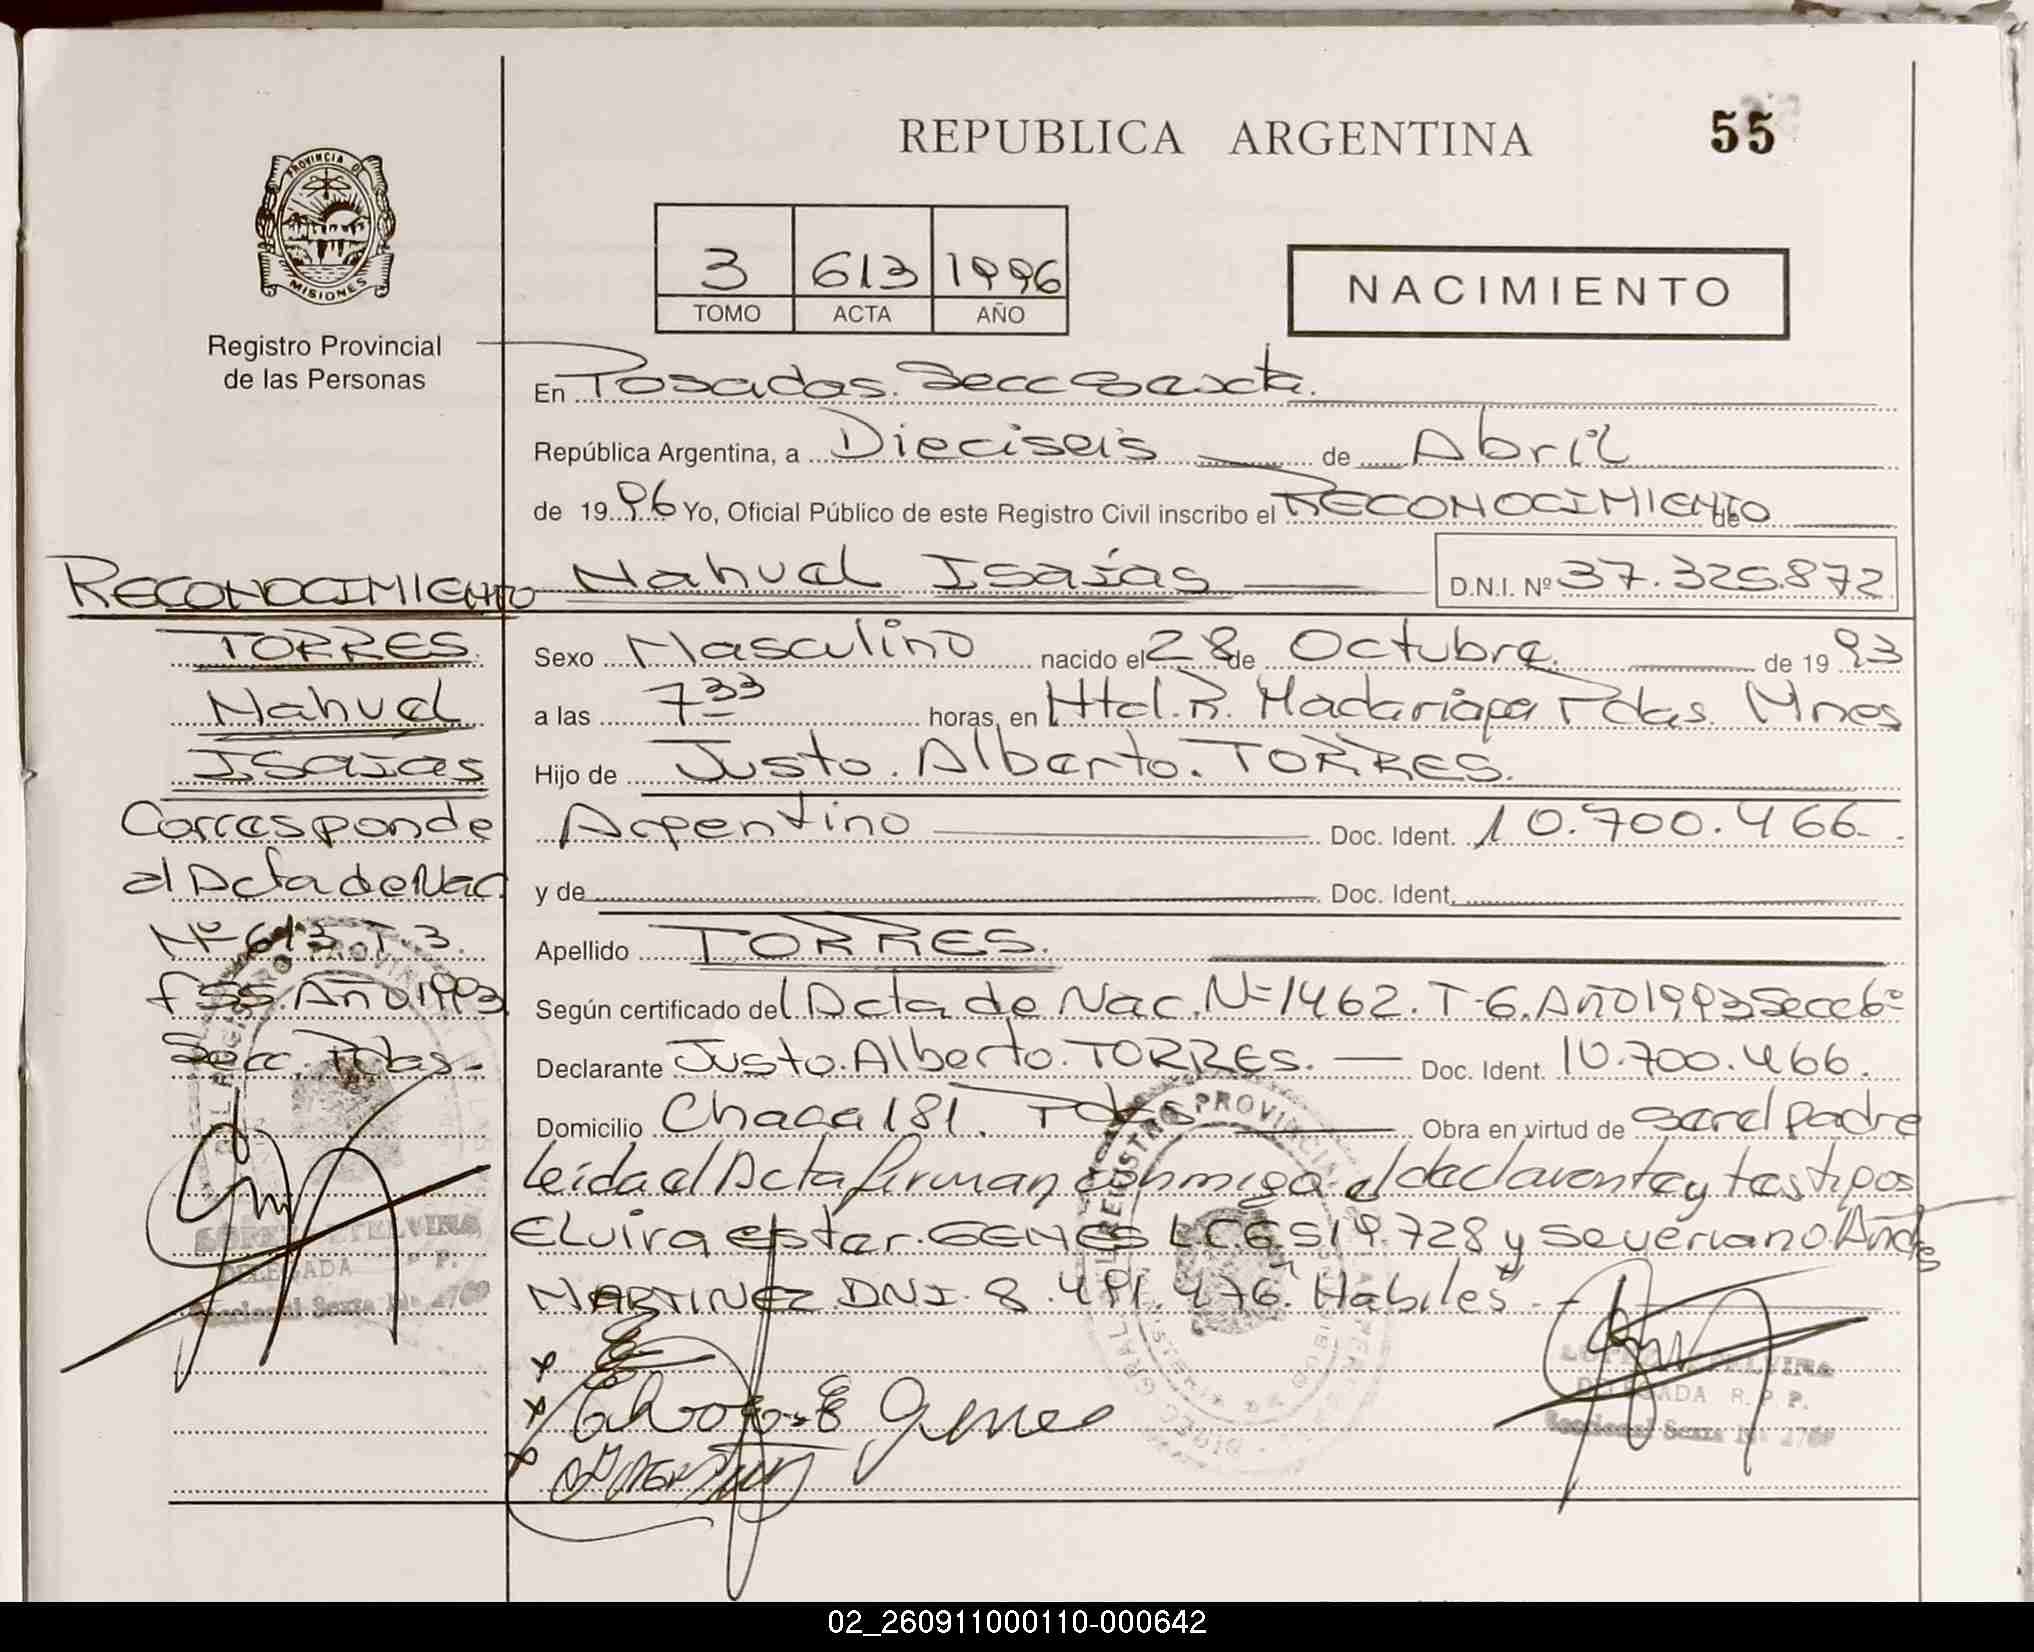 REPUBLICA ARGENTINA
55
PROVINCIA DE
MISIONES
Registro Provincial
de las Personas
3 613 1996
TOMO ACTA AÑO
NACIMIENTO
En Posadas. Secc Sexta.
República Argentina, a Dieciseis de Abril
de 1996 Yo, Oficial Público de este Registro Civil inscribo el RECONOCIMIENTO de
Nahuel Isaías D.N.I. Nº 37.325.872
RECONOCIMIENTO
TORRES
Nahuel
Isaias
Corresponde
al Acta de Nac.
Nº 613. T. 3.
f 55. Año 1993
Secc. Pdas.
Sexo Masculino nacido el 28 de Octubre de 1993
a las 7 33 horas, en Htal. R. Madariaga Pdas. Mnes
Hijo de Justo. Alberto. TORRES.
Argentino Doc. Ident. 10.700.466.
y de Doc. Ident.
Apellido TORRES.
Según certificado del Acta de Nac. Nº 1462. T-6. Año 1993 Secc 6º
Declarante Justo. Alberto. TORRES. Doc. Ident. 10.700.466.
Domicilio Chaca 181. Pdas Obra en virtud de ser el padre
Leida el Acta firman conmigo el declarante y testigos
Elvira Ester. GENES LC 6.519.728 y Severiano Andrés
MARTINEZ DNI. 8.491.476 "Habiles"
DELEGADA R. P. P.
Seccional Sexta
DELEGADA R. P. P.
Seccional Sexta
02_260911000110-000642